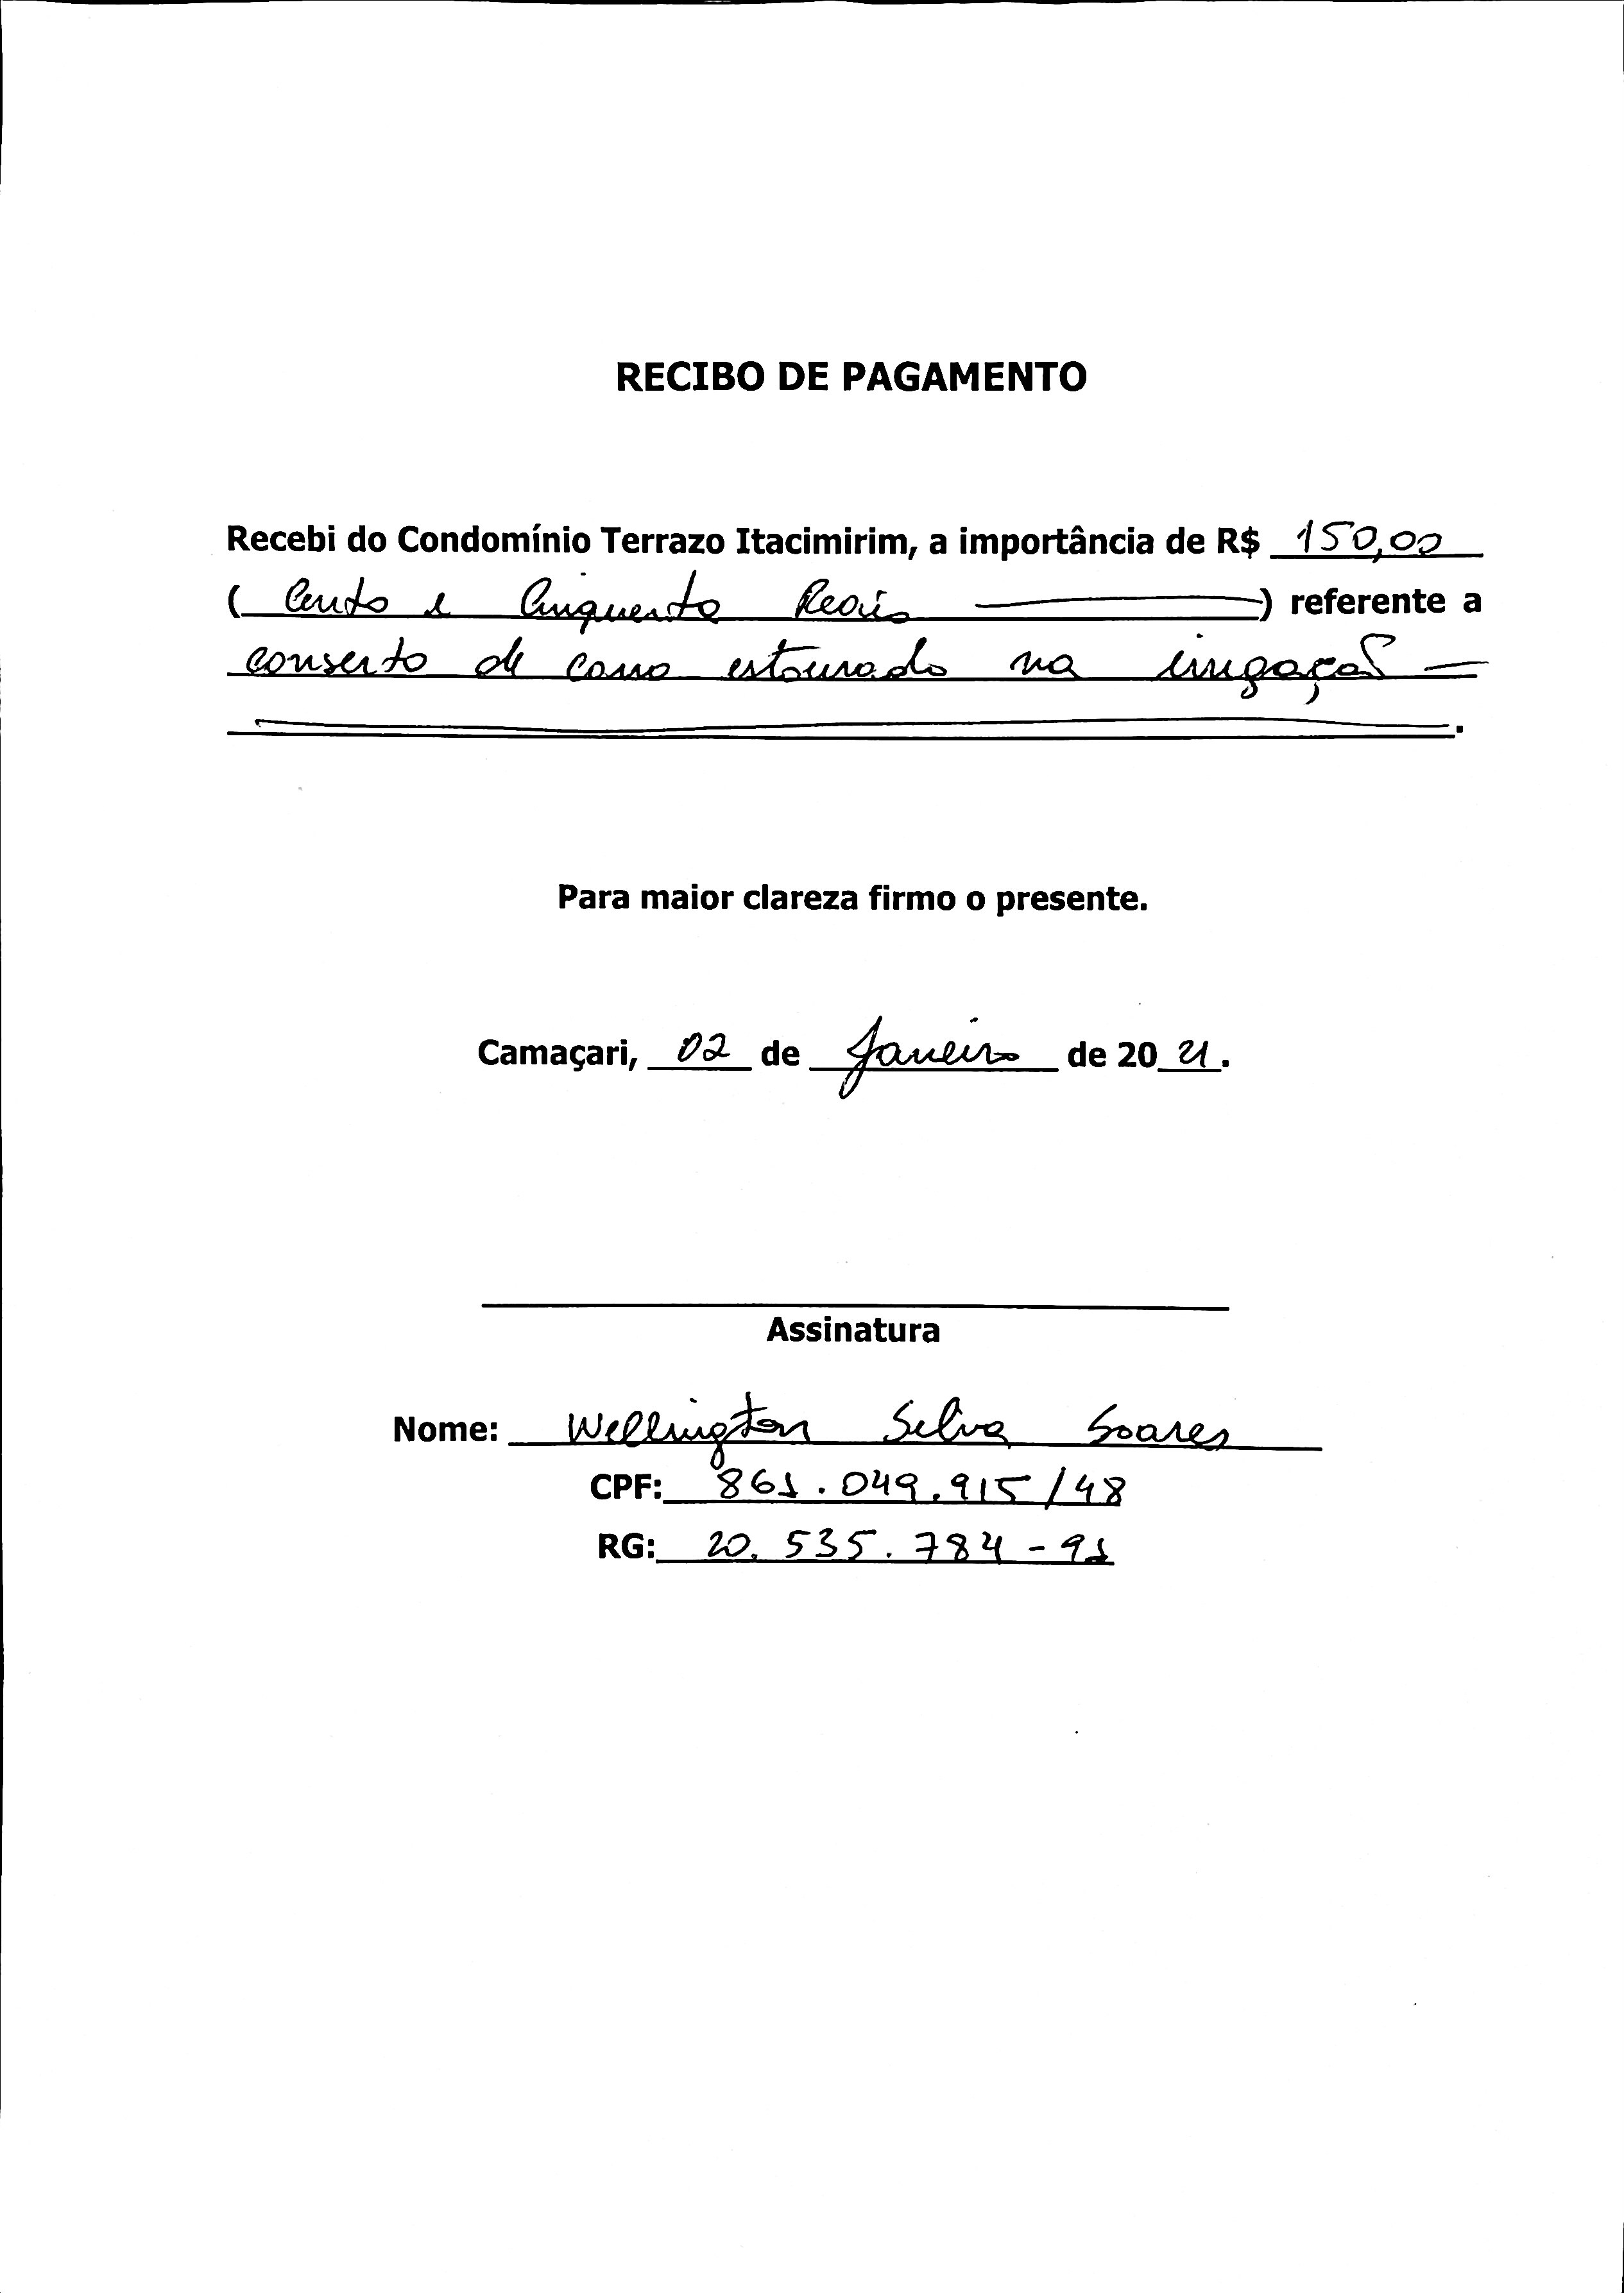 RECIBO DE PAGAMENTO
Recebi do Condomínio Terrazo Itacimirim, a importância de R$ 150,00
( Cento e Cinquenta Reais ) referente a
conserto de cano estourado na irrigação
.
Para maior clareza firmo o presente.
Camaçari, 02 de Janeiro de 20 21.
Assinatura
Nome: Wellington Silva Soares
CPF: 861.049.915/48
RG: 20.535.784-91